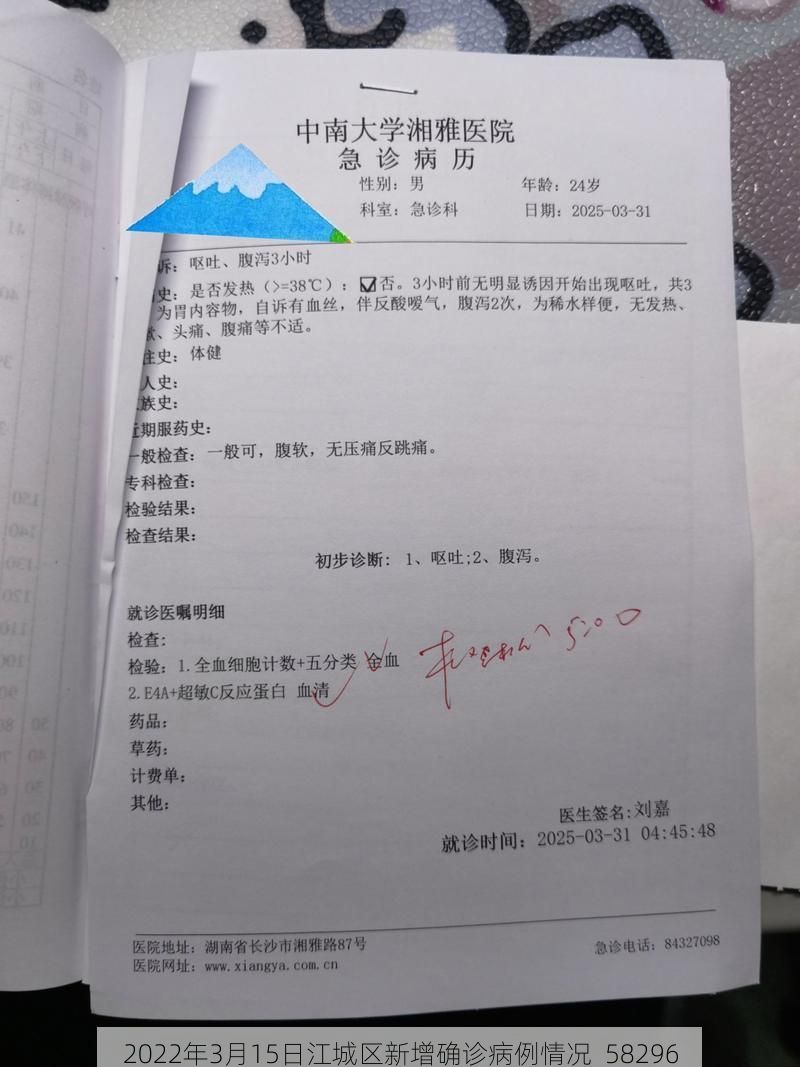 中南大学湘雅医院
急诊病历
性别：男 年龄：24岁
科室：急诊科 日期：2025-03-31
诉：呕吐、腹泻3小时
史：是否发热（>=38℃）：☑否。3小时前无明显诱因开始出现呕吐，共3
为胃内容物，自诉有血丝，伴反酸嗳气，腹泻2次，为稀水样便，无发热、
、头痛、腹痛等不适。
往史：体健
人史：
族史：
近期服药史：
一般检查：一般可，腹软，无压痛反跳痛。
专科检查：
检验结果：
检查结果：
初步诊断：1、呕吐;2、腹泻。
就诊医嘱明细
检查：
检验：1.全血细胞计数+五分类 全血
2.E4A+超敏C反应蛋白 血清
5:00
药品：
草药：
计费单：
其他：
医生签名:刘嘉
就诊时间：2025-03-31 04:45:48
医院地址：湖南省长沙市湘雅路87号 急诊电话：84327098
医院网址：www.xiangya.com.cn
2022年3月15日江城区新增确诊病例情况 58296